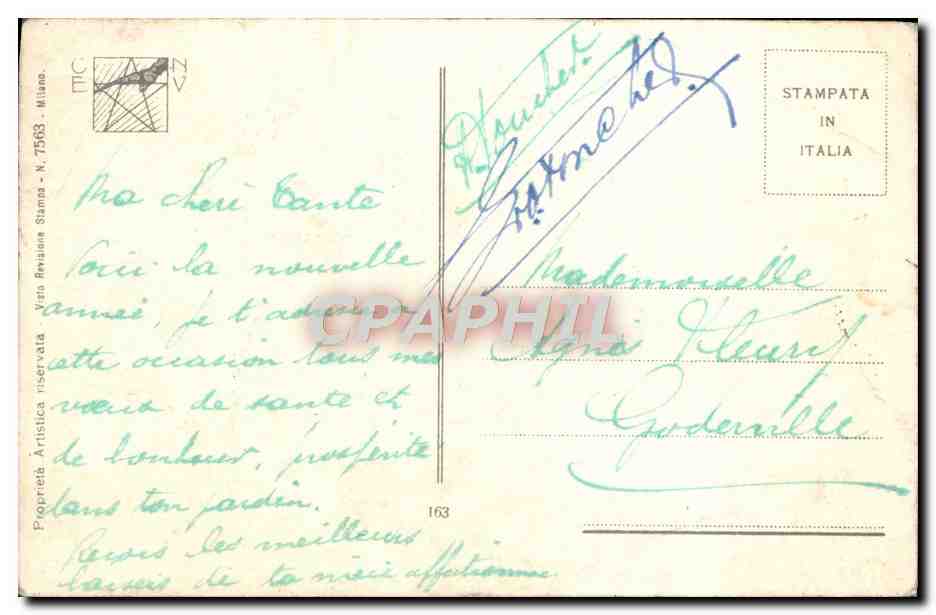 C A N
E V
Proprietà Artistica riservata - Visto Revisione Stampa - N. 7563 - Milano.
Ma cheri Tante
Voici la nouvelle
année, je t'adresse a
cette occasion tous mes
vœux de santé et
de bonheur, prospérité
dans ton jardin.
Reçois les meilleurs
baisers de ta nièce affectionnée.
163
STAMPATA
IN
ITALIA
Mademoiselle
Agnès Fleury
Goderville
CPAPHIL